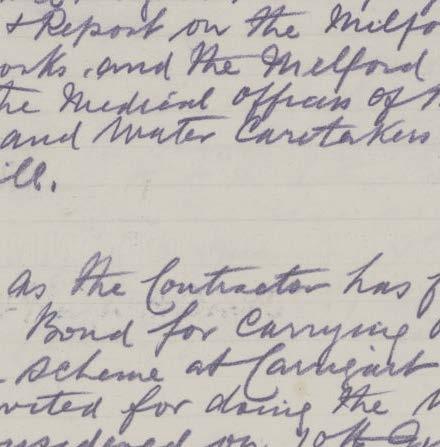 & Report on the Milfo
orks, and the Melford
the Medical Officers of
and Water Caretakers
ill.
as the Contractor has f
Bond for Carrying
Scheme at Carrigart
vited for doing the
nsidered on 10th